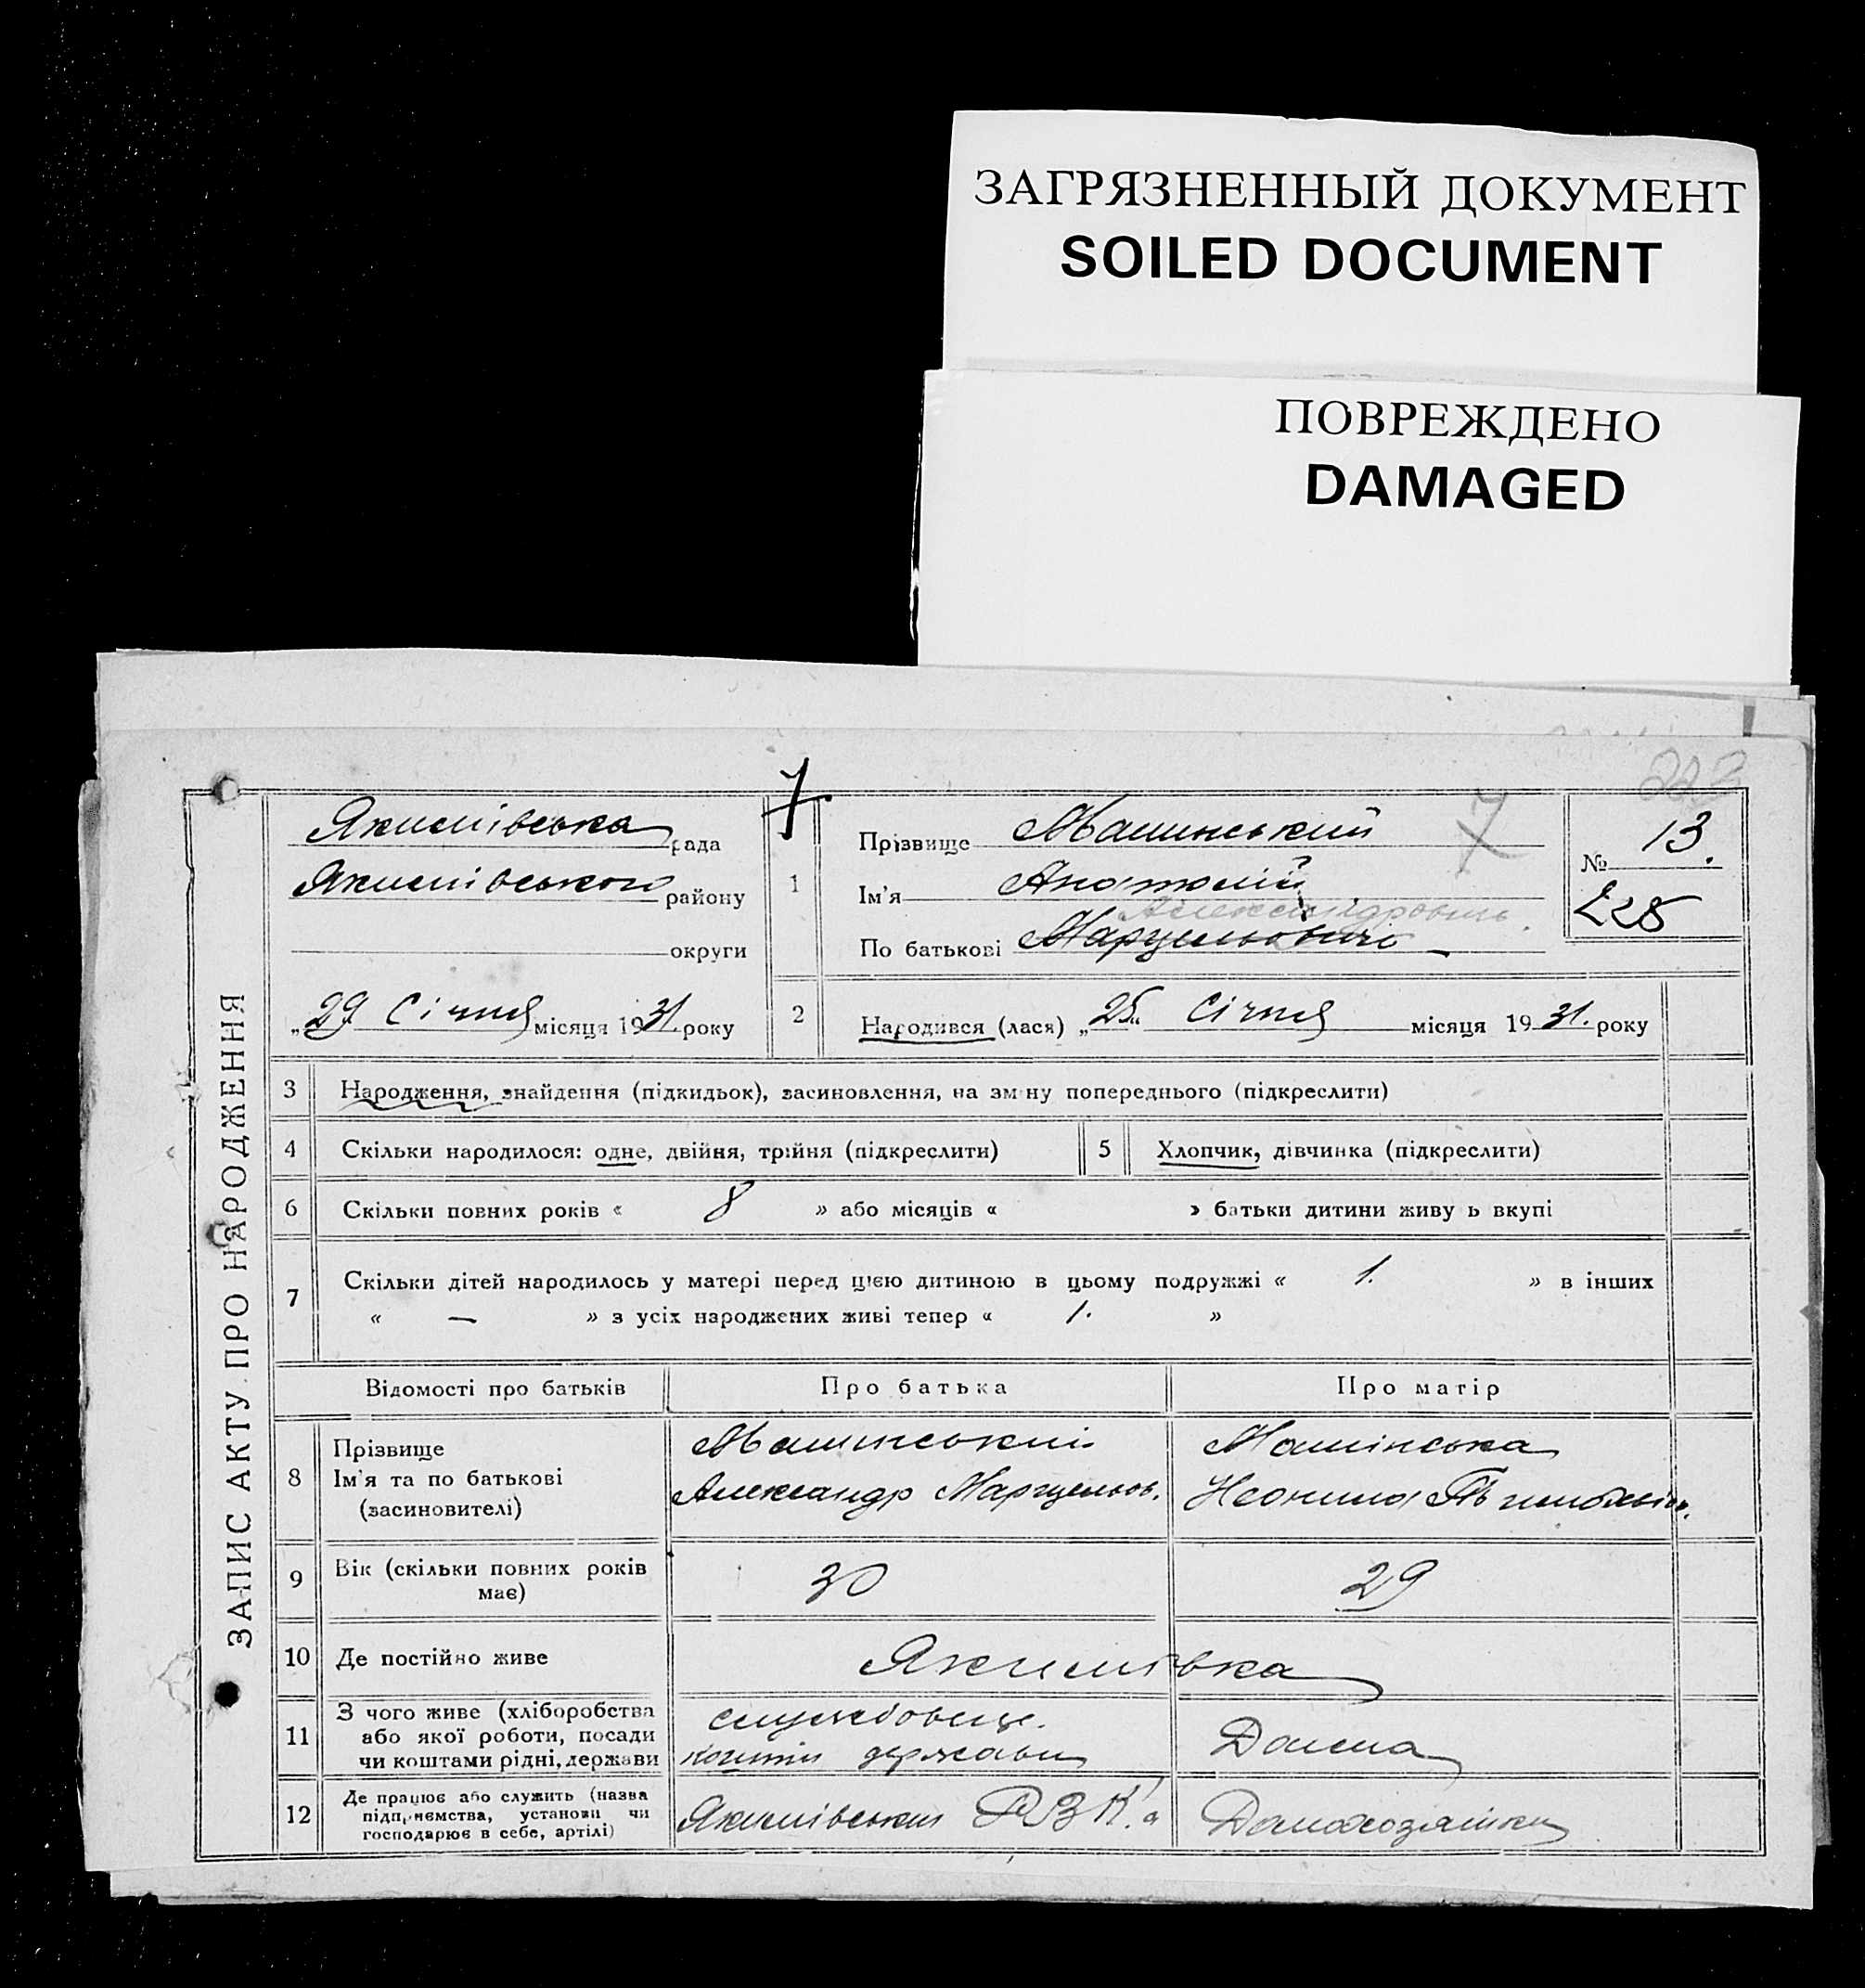 ЗАГРЯЗНЕННЫЙ ДОКУМЕНТ
SOILED DOCUMENT
ПОВРЕЖДЕНО
DAMAGED
ЗАПИС АКТУ ПРО НАРОДЖЕННЯ
Якимівська рада
Якимівського району
округи
„29 Січня місяця 1931. року
7
1
Прізвище
Ім'я Анатолій
Александрович
По батькові Марцельович
7
№ 13.
228
2
Народився (лася) „25“ Січня місяця 1931. року
3 Народження, знайдення (підкидьок), засиновлення, на зміну попереднього (підкреслити)
4 Скільки народилося: одне, двійня, трійня (підкреслити)
5 Хлопчик, дівчинка (підкреслити)
6 Скільки повних років « 8 » або місяців « » батьки дитини живуть вкупі
7 Скільки дітей народилось у матері перед цією дитиною в цьому подружжі « 1. » в інших
« — » з усіх народжених живі тепер « 1. »
Відомості про батьків
Про батька
Про матір
8 Прізвище
Ім'я та по батькові
(засиновителі)
Александр Марцельов.
9 Вік (скільки повних років
має)
30
29
10 Де постійно живе
Якимівка
11 З чого живе (хліборобства
або якої роботи, посади
чи коштами рідні, держави
службовець.
кошти держави
Дома
12 Де працює або служить (назва
підприємства, установи чи
господарює в себе, артілі)
Якимівський РВК.
Домохозяйка